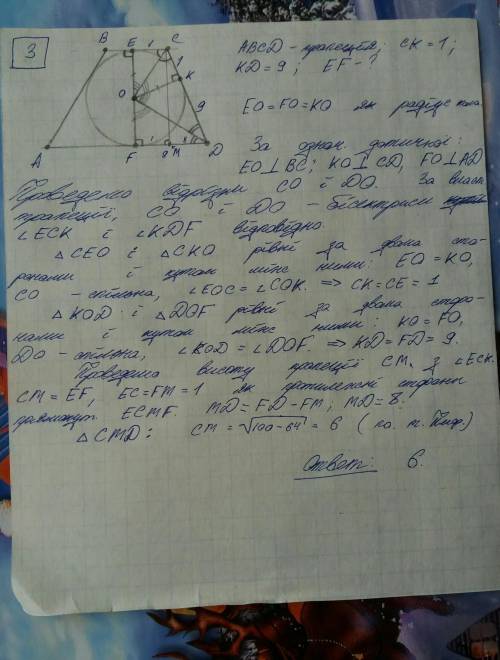 3
B E 1 C
1
K
O
9
1
A F 9 M D
ABCD - трапеція; CK = 1;
KD = 9; EF - ?
EO = FO = KO як радіус кола.
За ознак. дотичної:
EO⊥BC; KO⊥CD, FO⊥AD
Проведемо відрізки CO і DO. За власт.
трапеції, CO і DO - бісектриси
∠ECK і ∠KDF відповідно.
△CEO і △CKO рівні за двома сто-
ронами і кутом між ними: EO = KO,
CO - спільна, ∠EOC = ∠COK. ⇒ CK = CE = 1
△KOD і △DOF рівні за двома сторо-
нами і кутом між ними: KO = FO,
DO - спільна, ∠KOD = ∠DOF. ⇒ KD = FD = 9.
Проведемо висоту трапеції CM з ∠ECK.
CM = EF, EC = FM = 1 як протилежні сторони
прямокут. ECMF. MD = FD - FM; MD = 8.
△CMD: CM = √100-64 = 6 (по т. Піф.)
Ответ: 6.